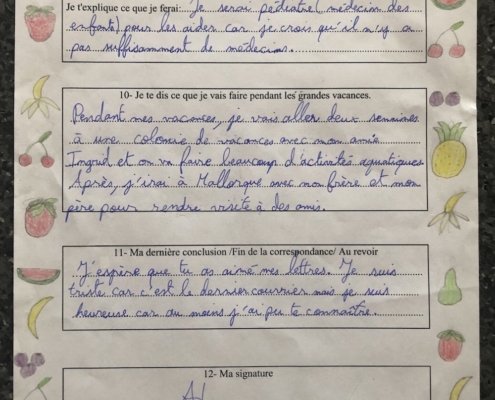 Je t'explique ce que je ferai: Je serai pédiatre (médecin des
enfants) pour les aider car je crois qu'il n'y a
pas suffisamment de médecins.
10- Je te dis ce que je vais faire pendant les grandes vacances.
Pendant mes vacances, je vais aller deux semaines
à une colonie de vacances avec mon amie
Ingrid et on va faire beaucoup d'activités aquatiques
Après, j'irai à Mallorque avec mon frère et mon
père pour rendre visite à des amis.
11- Ma dernière conclusion /Fin de la correspondance/ Au revoir
J'espère que tu as aimé mes lettres. Je suis
triste car c'est le dernier courrier mais je suis
heureuse car au moins j'ai pu te connaître.
12- Ma signature